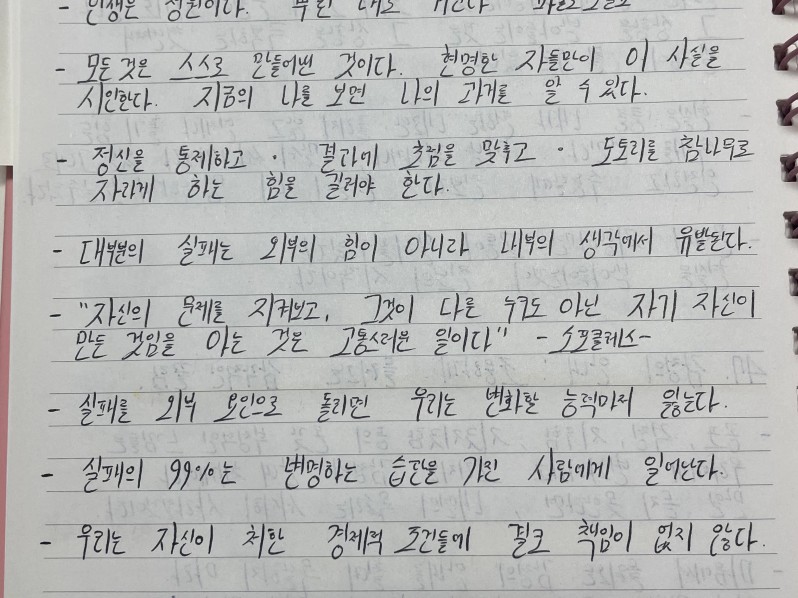 - 인생은 정원이다. 뿌린 대로
- 모든 것은 스스로 만들어낸 것이다. 현명한 자들만이 이 사실을
시인한다. 지금의 나를 보면 나의 과거를 알 수 있다.
- 정신을 통제하고 · 결과에 초점을 맞추고 · 도토리를 참나무로
자라게 하는 힘을 길러야 한다.
- 대부분의 실패는 외부의 힘이 아니라 내부의 생각에서 유발된다.
- "자신의 문제를 지켜보고, 그것이 다른 누구도 아닌 자기 자신이
만든 것임을 아는 것은 고통스러운 일이다" -소포클레스-
- 실패를 외부 요인으로 돌리면 우리는 변화할 능력마저 잃는다.
- 실패의 99%는 변명하는 습관을 가진 사람에게 일어난다.
- 우리는 자신이 처한 경제적 조건들에 결코 책임이 없지 않다.